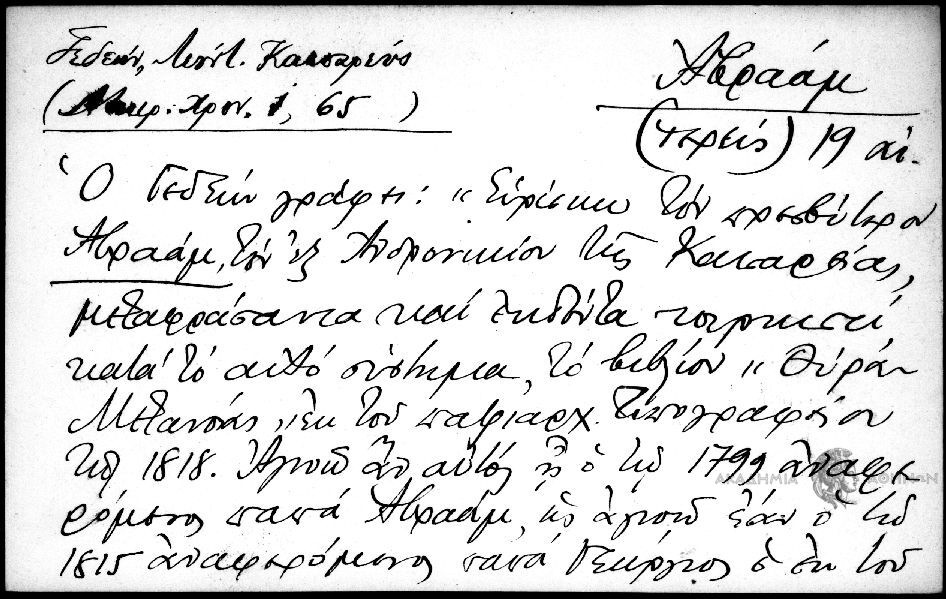 Γεδεών, Λεόντ. Καισαρεύς
Ἀβραάμ
(Μικρ. Χρον. 1, 65 )
(ἱερεύς) 19 αἰ.
Ὁ Γεδεών γράφει: " Εὑρίσκω τόν πρεσβύτερον
Ἀβραάμ, τόν ἐξ Ἀνδρονικίου τῆς Καισαρείας,
μεταφράσαντα καί ἐκδόντα τουρκιστί
κατά τό αὐτό σύστημα, τό βιβλίον " Θύρα
Μετανοίας " ἐκ τοῦ πατριαρχ. Τυπογραφείου
τῷ 1818. Ἀγνοῶ ἄν αὐτός ᾖ ὁ τῷ 1799 ἀναφε-
ρόμενος παπά Ἀβραάμ, ὡς ἀγνοῶ ἐάν ὁ τῷ
1815 ἀναφερόμενος παπά Γεώργιος ὁ ἐκ τοῦ
ΑΚΑΔΗΜΙΑ ΑΘΗΝΩΝ